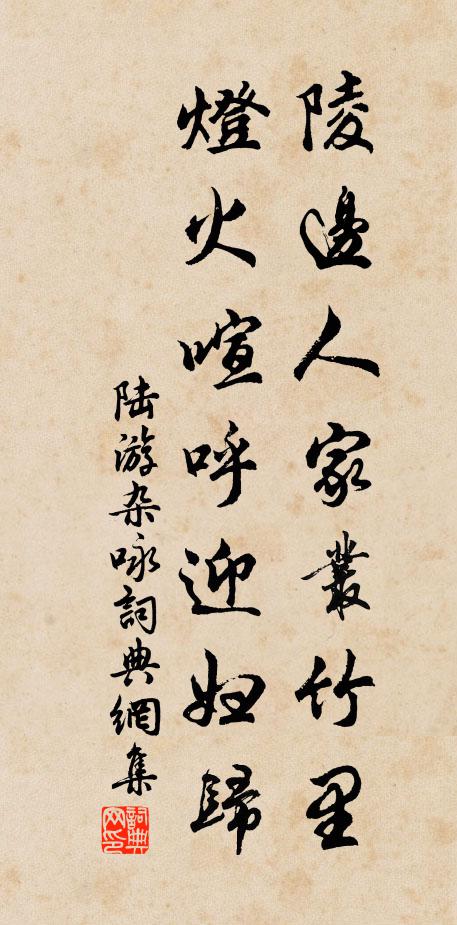 陵邊人家叢竹里
燈火喧呼迎妇歸
陆游杂咏詞典網集
詞典网印